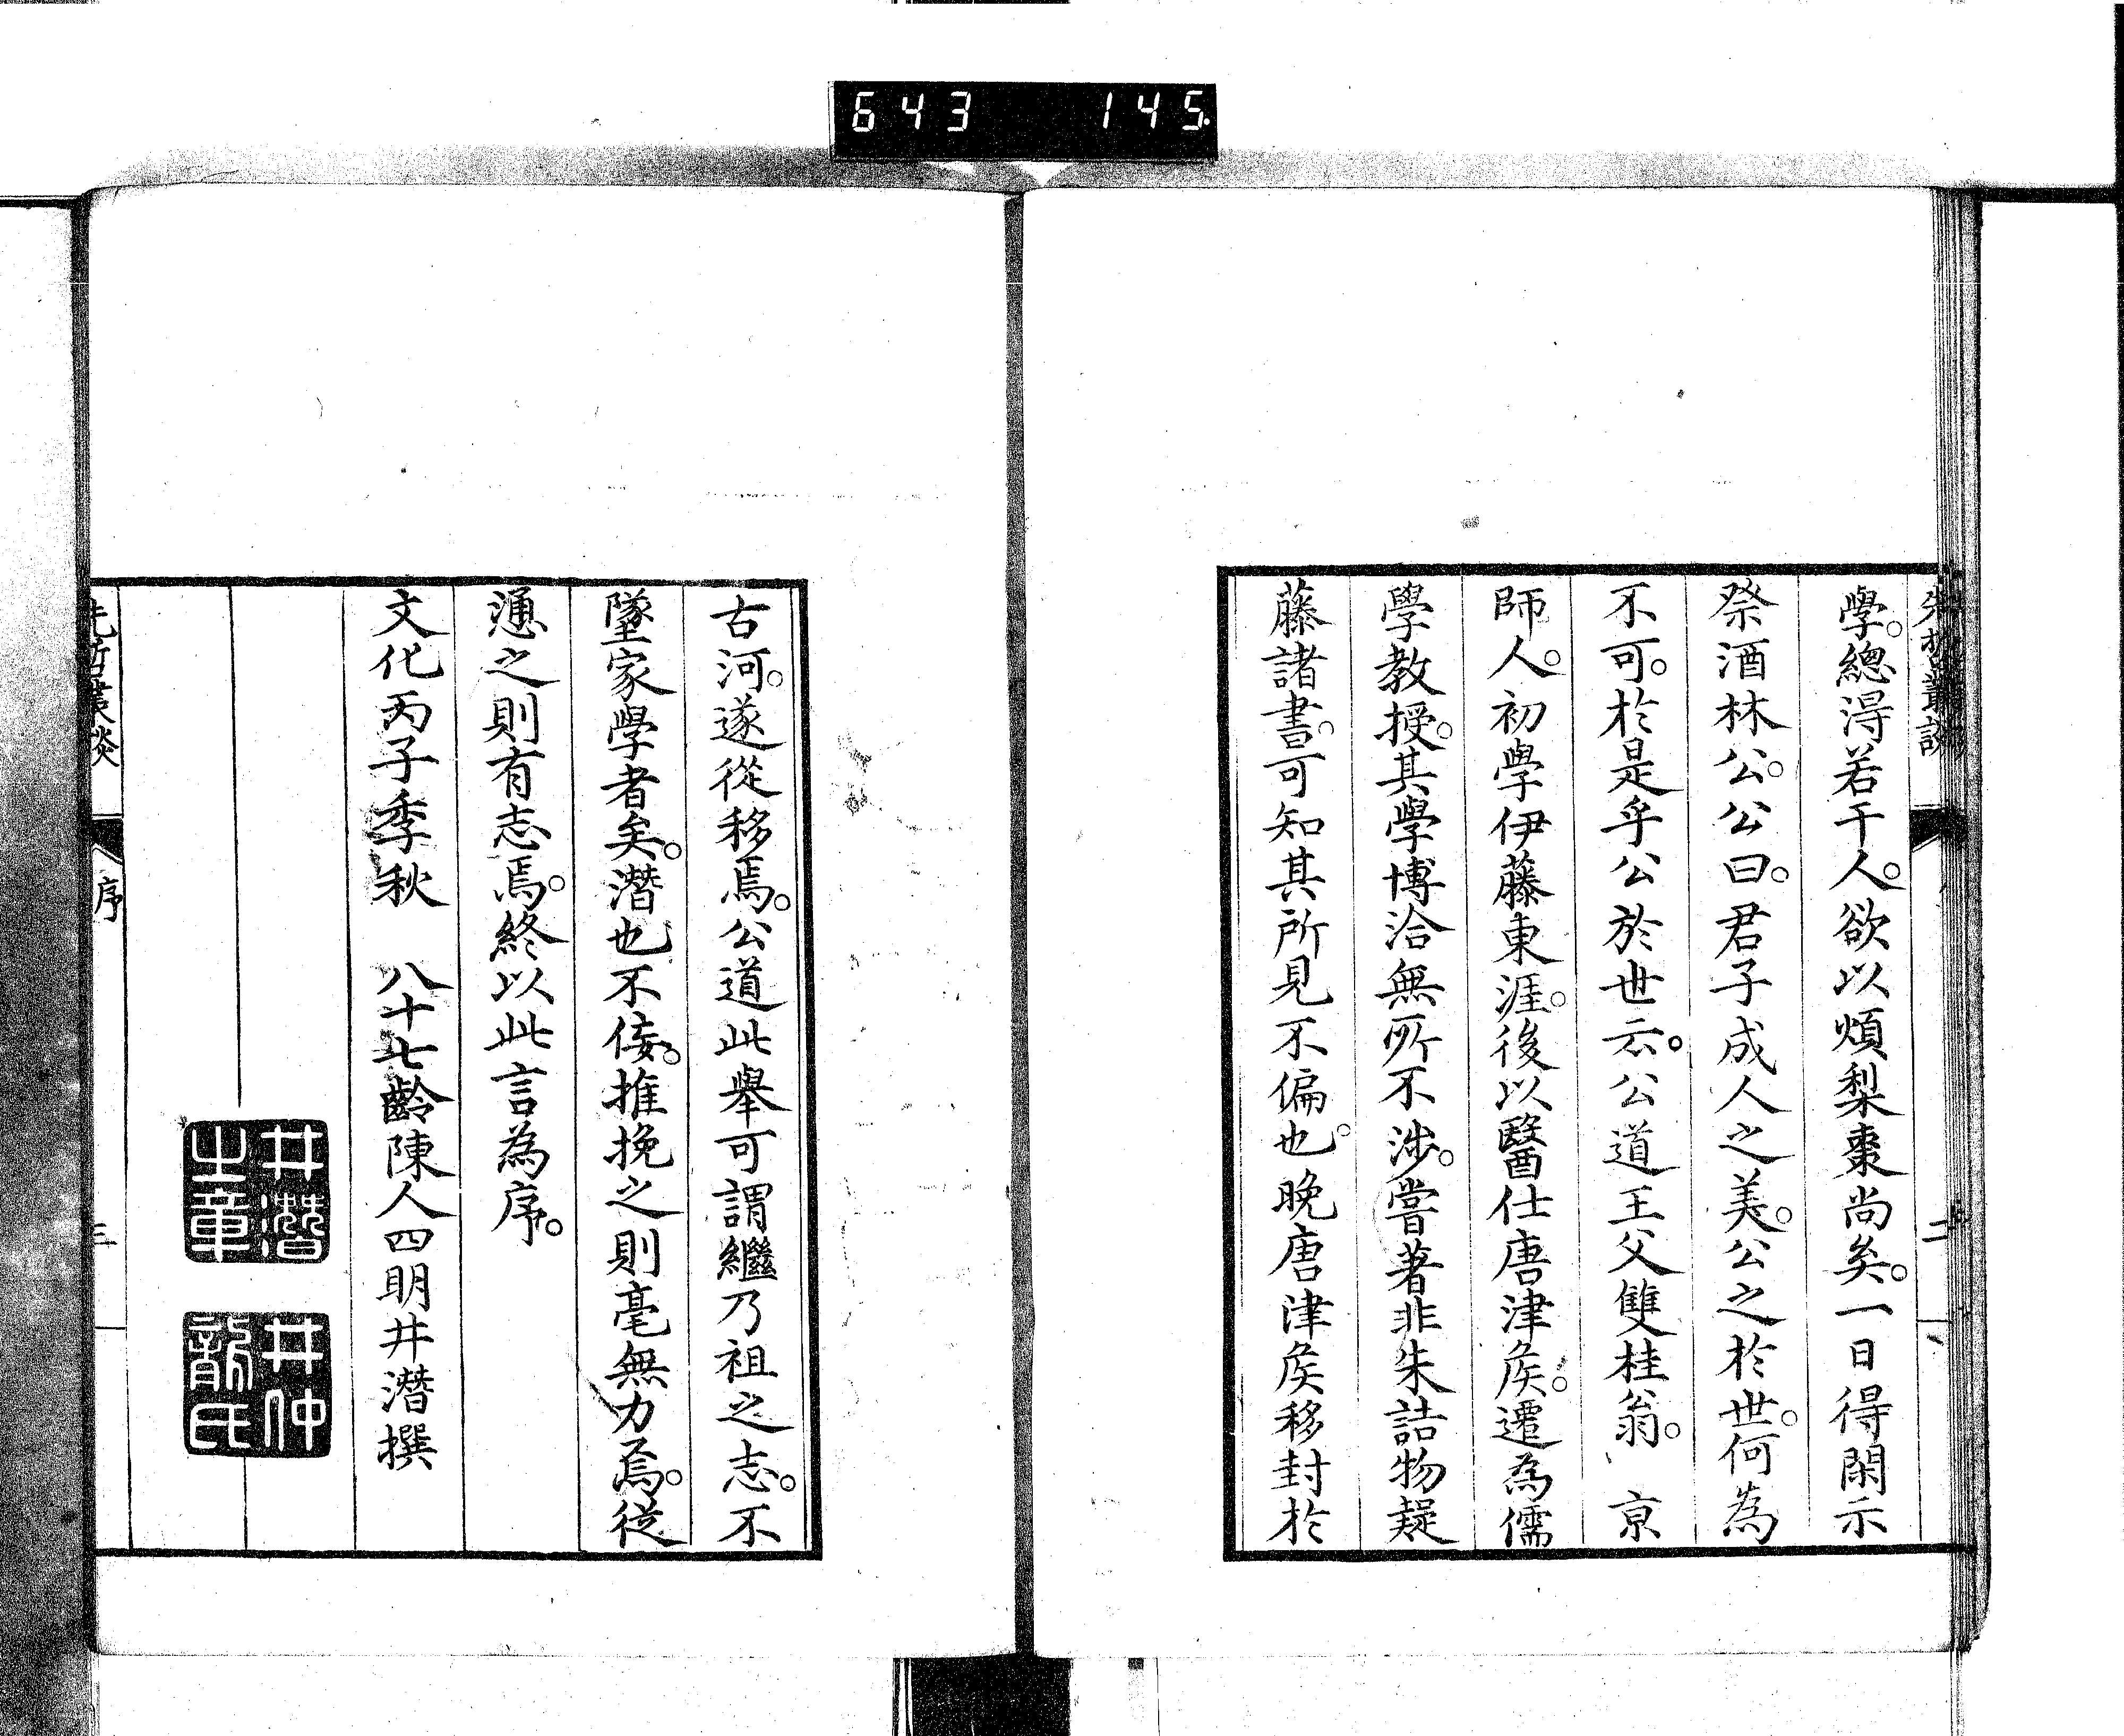 643 145
先哲叢談
二
學。總得若干人。欲以煩梨棗尚矣。一日得閑示
祭酒林公。公曰。君子成人之美。公之於世。何為
不可。於是乎公於世云。公道王父雙桂翁。 京
師人。初學伊藤東涯。後以醫仕唐津矦。遷為儒
學教授。其學博洽無所不涉。嘗著非朱詰物疑
藤諸書。可知其所見不偏也。晚唐津矦移封於
古河。遂從移焉。公道此舉可謂繼乃祖之志。不
墜家學者矣。潛也不佞。推挽之則毫無力焉。從
慂之則有志焉。終以此言為序。
文化丙子季秋 八十七齡陳人四明井潛撰
井潛之章
井仲龍氏
先哲叢談
序
三